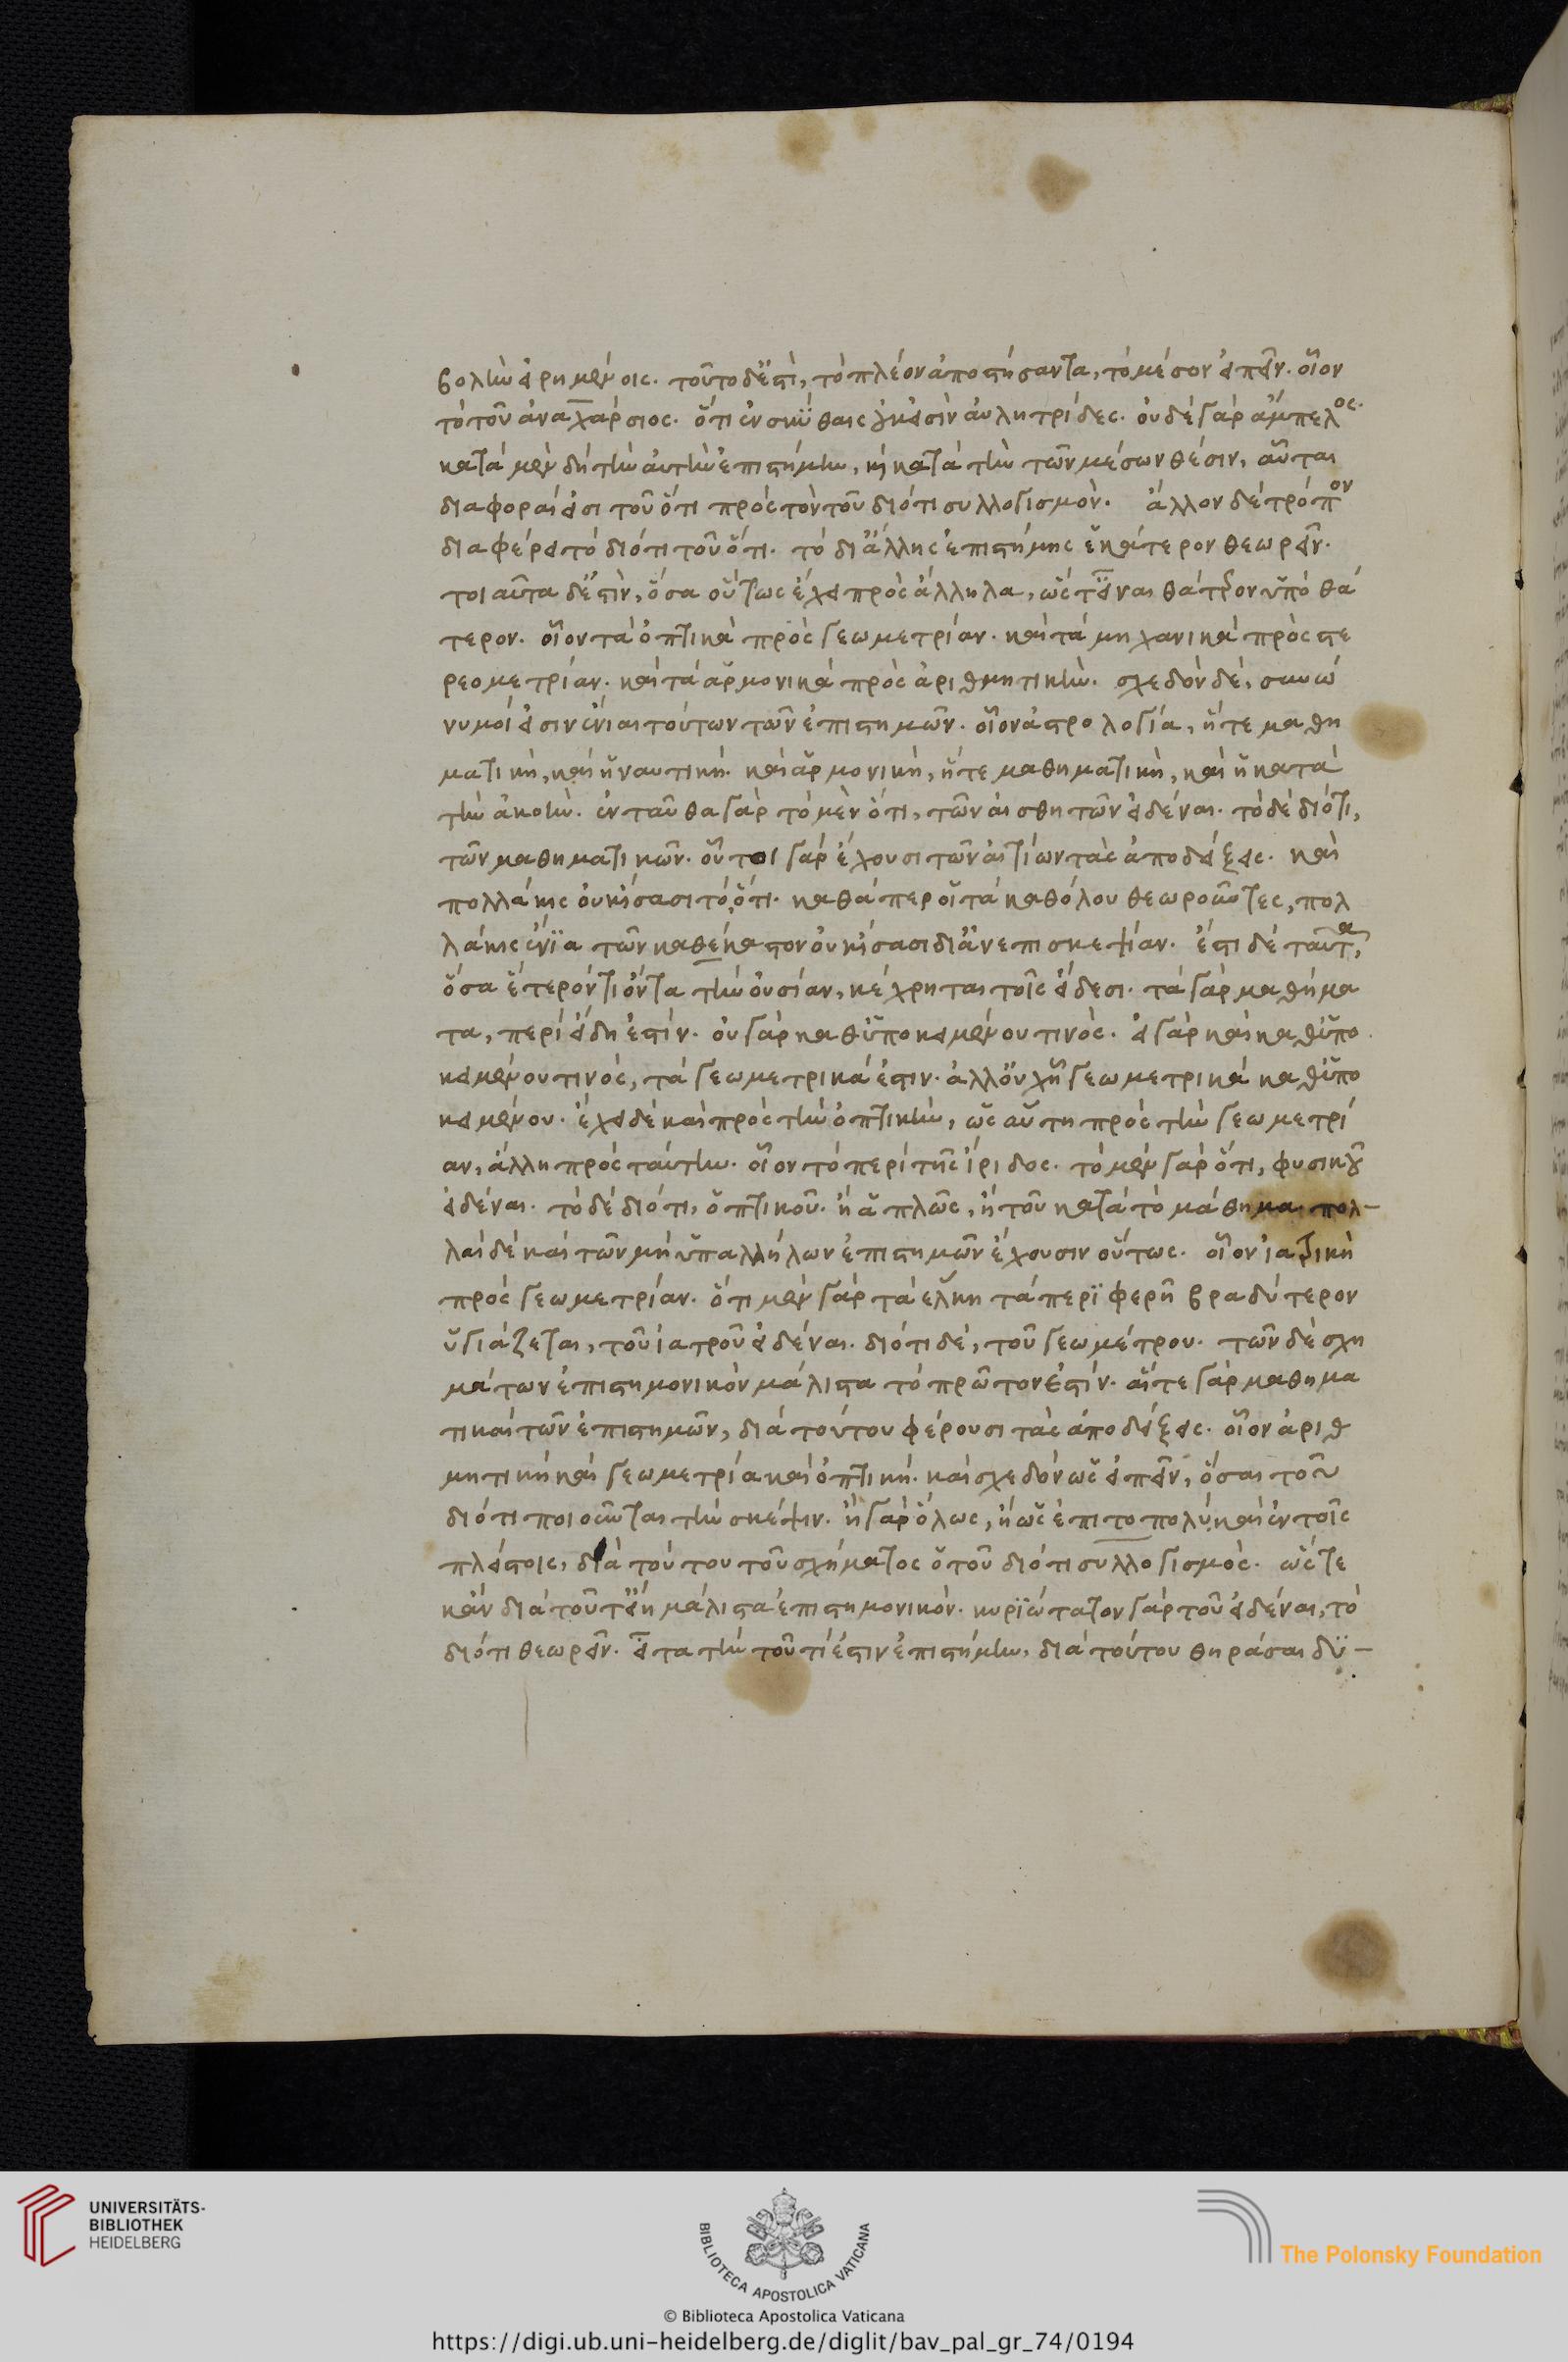 βολὴν εἰρημένοις. τοῦτο δἔστὶ, τὸ πλέον ἀποστήσαντα, τὸ μέσον εἰπεῖν. οἷον
τὸ τοῦ ἀναχάρσιος. ὅτι ἐν σκύθαις οὐκ εἰσὶν αὐλητρίδες. οὐδὲ γὰρ ἄμπελος.
κατὰ μὲν δὴ τὴν αὐτὴν ἐπιστήμην, καὶ κατὰ τὴν τῶν μέσων θέσιν, αὗται
διαφοραί εἰσι τοῦ ὅτι πρὸς τὸν τοῦ διότι συλλογισμόν. ἄλλον δὲ τρόπον
διαφέρει τὸ διότι τοῦ ὅτι. τὸ δι ἄλλης ἐπιστήμης ἑκάτερον θεωρεῖν.
τοιαῦτα δἔστὶν, ὅσα οὕτως ἔχει πρὸς ἄλληλα, ὥστ εἶναι θάτερον ὑπὸ θά
τερον. οἷον τὰ ὀπτικὰ πρὸς γεωμετρίαν. καὶ τὰ μηχανικὰ πρὸς στε
ρεομετρίαν. καὶ τὰ ἁρμονικὰ πρὸς ἀριθμητικήν. σχεδὸν δὲ, συνώ
νυμοί εἰσιν ἔνιαι τούτων τῶν ἐπιστημῶν. οἷον ἀστρολογία, ἥτε μαθη
ματικὴ, καὶ ἡ ναυτική. καὶ ἁρμονικὴ, ἥτε μαθηματικὴ, καὶ ἡ κατὰ
τὴν ἀκοήν. ἐνταῦθα γὰρ τὸ μὲν ὅτι, τῶν αἰσθητῶν εἰδέναι. τὸ δὲ διότι,
τῶν μαθηματικῶν. οὗτοι γὰρ ἔχουσι τῶν αἰτίων τὰς ἀποδείξεις. καὶ
πολλάκις οὐκ ἴσασι τὸ ὅτι. καθάπερ οἱ τὰ καθόλου θεωροῦντες, πολ
λάκις ἔνϊα τῶν καθέκαστον οὐκ ἴσασι δι ἀνεπισκεψίαν. ἔστι δὲ ταῦτα,
ὅσα ἕτερόν τι ὄντα τὴν οὐσίαν, κέχρηται τοῖς εἴδεσι. τὰ γὰρ μαθήμα
τα, περὶ εἴδη ἐστίν. οὐ γὰρ καθ ὑποκειμένου τινός. εἰ γὰρ καὶ καθ ὑπο
κειμένου τινός, τὰ γεωμετρικά ἐστιν. ἀλλ οὐχ ᾗ γεωμετρικὰ καθ ὑπο
κειμένου. ἔχει δὲ καὶ πρὸς τὴν ὀπτικὴν, ὡς αὕτη πρὸς τὴν γεωμετρί
αν, ἄλλη πρὸς ταύτην. οἷον τὸ περὶ τῆς ἴριδος. τὸ μὲν γὰρ ὅτι, φυσικοῦ
εἰδέναι. τὸ δὲ διότι, ὀπτικοῦ. ἢ ἁπλῶς, ἢ τοῦ κατὰ τὸ μάθημα. πολ-
λαὶ δὲ καὶ τῶν μὴ ὑπαλλήλων ἐπιστημῶν ἔχουσιν οὕτως. οἷον ἰατρικὴ
πρὸς γεωμετρίαν. ὅτι μὲν γὰρ τὰ ἕλκη τὰ περϊφερῆ βραδύτερον
ὑγιάζεται, τοῦ ἰατροῦ εἰδέναι. διότι δὲ, τοῦ γεωμέτρου. τῶν δὲ σχη
μάτων ἐπιστημονικὸν μάλιστα τὸ πρῶτον ἐστίν. αἵτε γὰρ μαθημα
τικαὶ τῶν ἐπιστημῶν, διὰ τούτου φέρουσι τὰς ἀποδείξεις. οἷον ἀριθ
μητικὴ καὶ γεωμετρία καὶ ὀπτική. καὶ σχεδὸν ὡς εἰπεῖν, ὅσαι τοῦ
διότι ποιοῦνται τὴν σκέψιν. ἢ γὰρ ὅλως, ἢ ὡς ἐπιτοπολὺ καὶ ἐν τοῖς
πλείστοις, διὰ τούτου τοῦ σχήματος ὁ τοῦ διότι συλλογισμός. ὥστε
κἂν διὰ τοῦτ εἴη μάλιστα ἐπιστημονικόν. κυρϊώτατον γὰρ τοῦ εἰδέναι, τὸ
διότι θεωρεῖν. εἶτα τὴν τοῦ τί ἐστιν ἐπιστήμην, διὰ τούτου θηρᾶσαι δυ-
UNIVERSITÄTS-
BIBLIOTHEK
HEIDELBERG
BIBLIOTECA APOSTOLICA VATICANA
The Polonsky Foundation
© Biblioteca Apostolica Vaticana
https://digi.ub.uni-heidelberg.de/diglit/bav_pal_gr_74/0194